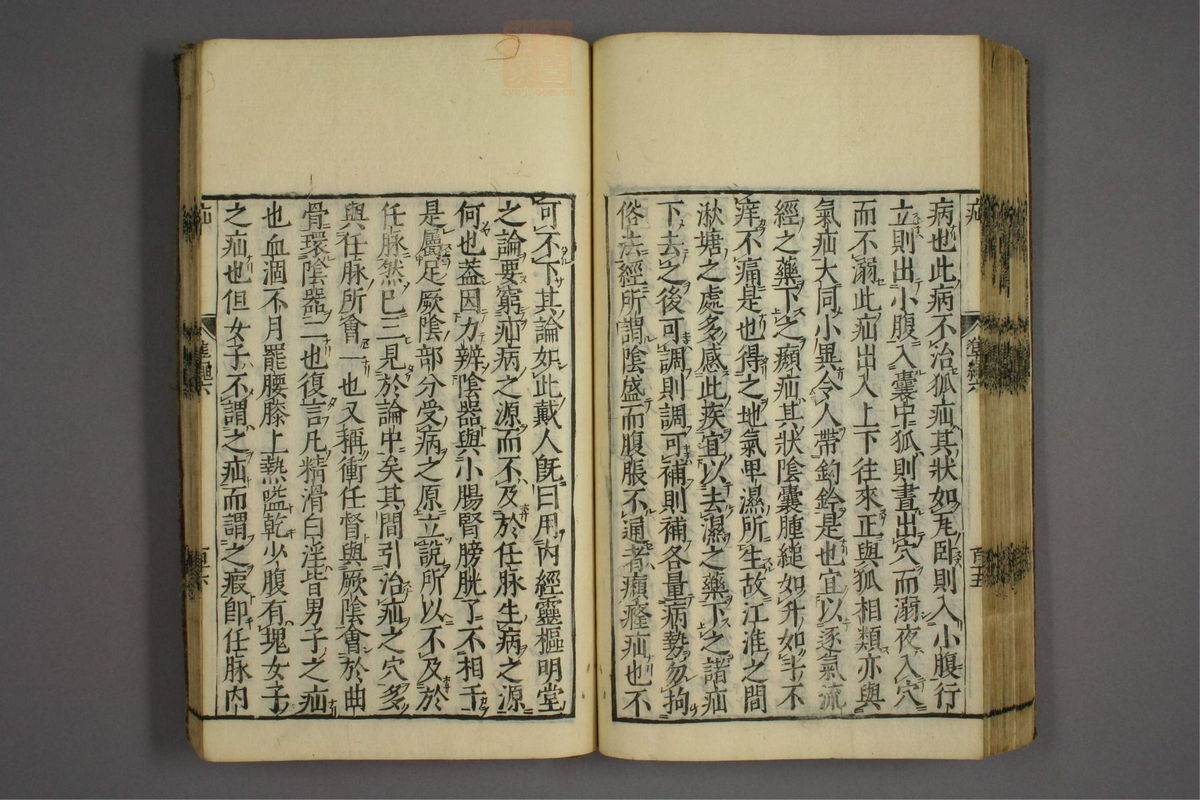 病也此病不治狐疝其狀如瓦臥則入小腹行
立則出小腹入囊中狐則晝出穴而溺夜入穴
而不溺此疝出入上下往來正與狐相類亦與
氣疝大同小異令人帶鉤鈐是也宜以逐氣流
經之藥下之㿗疝其狀陰囊腫縋如升如斗不
痒不痛是也得之地氣卑濕所生故江淮之間
湫塘之處多感此疾宜以去濕之藥下之諸疝
下去之後可調則調可補則補各量病勢勿拘
俗法經所謂陰盛而腹脹不通者㿗癃疝也不
可不下其論如此戴人旣曰用內經靈樞明堂
之論要窮疝病之源而不及於任脉生病之源
何也葢因力辨陰器與小腸腎膀胱了不相干
是屬足厥陰部分受病之原立說所以不及於
任脉然巳三見於論中矣其間引治疝之穴多
與任脉所會一也又稱衝任督與厥陰會於曲
骨環陰器二也復言凡精滑白淫皆男子之疝
也血涸不月罷腰膝上熱嗌乾少腹有塊女子
之疝也但女子不謂之疝而謂之瘕即任脉內
疝
百五
疝
百六